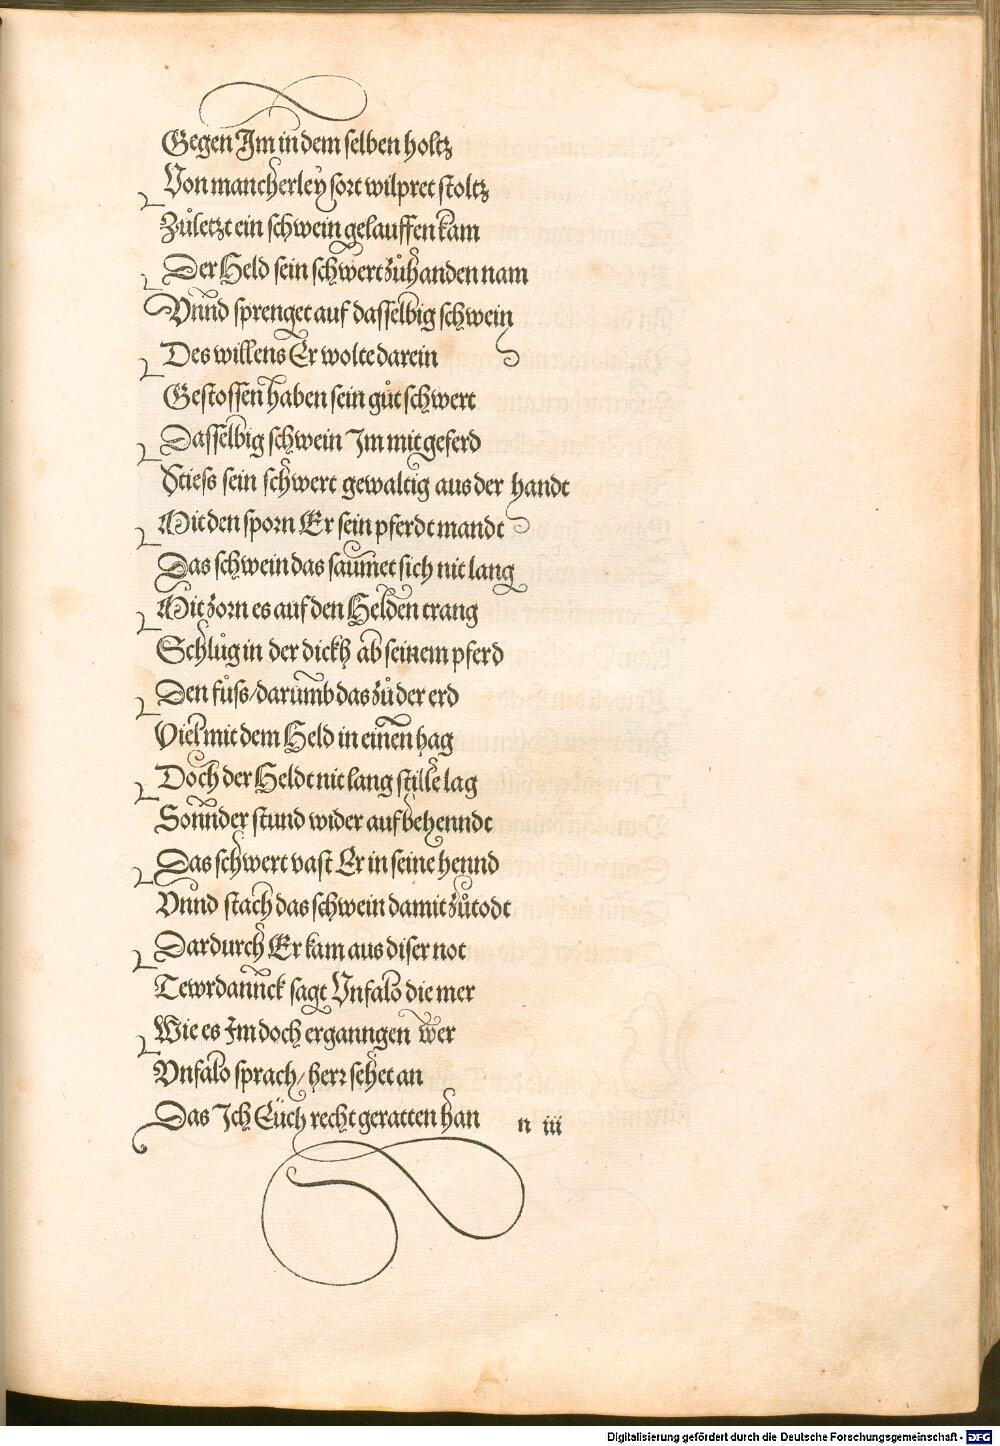 Gegen Im in dem selben holtz
Von mancherley sort wilpret stoltz
Zůletzt ein schwein gelauffen kam
Der Held sein schwert zůhanden nam
Vnnd sprenget auf dasselbig schwein
Des willens Er wolte darein
Gestossen haben sein gůt schwert
Dasselbig schwein Im mit geferd
Stiess sein schwert gewaltig aus der handt
Mit den sporn Er sein pferdt mandt
Das schwein das saumet sich nit lang
Mit zorn es auf den Helden trang
Schlůg in der dickh ab seinem pferd
Den fůss/darumb das zů der erd
Viel mit dem Held in einen hag
Doch der Heldt nit lang stille lag
Sonnder stund wider auf behenndt
Das schwert vast Er in seine hennd
Vnnd stach das schwein damit zůtodt
Dardurch Er kam aus diser not
Tewrdannck sagt Vnfalo die mer
Wie es Im doch erganngen wer
Vnfalo sprach/herr sehet an
Das Ich Eüch recht geratten han
n iii
Digitalisierung gefördert durch die Deutsche Forschungsgemeinschaft - DFG